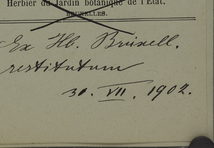 Herbier du Jardin botanique de l'Etat.
BRUXELLES.
Ex Hb. Bruxell.
restitutum
30. VII. 1902.